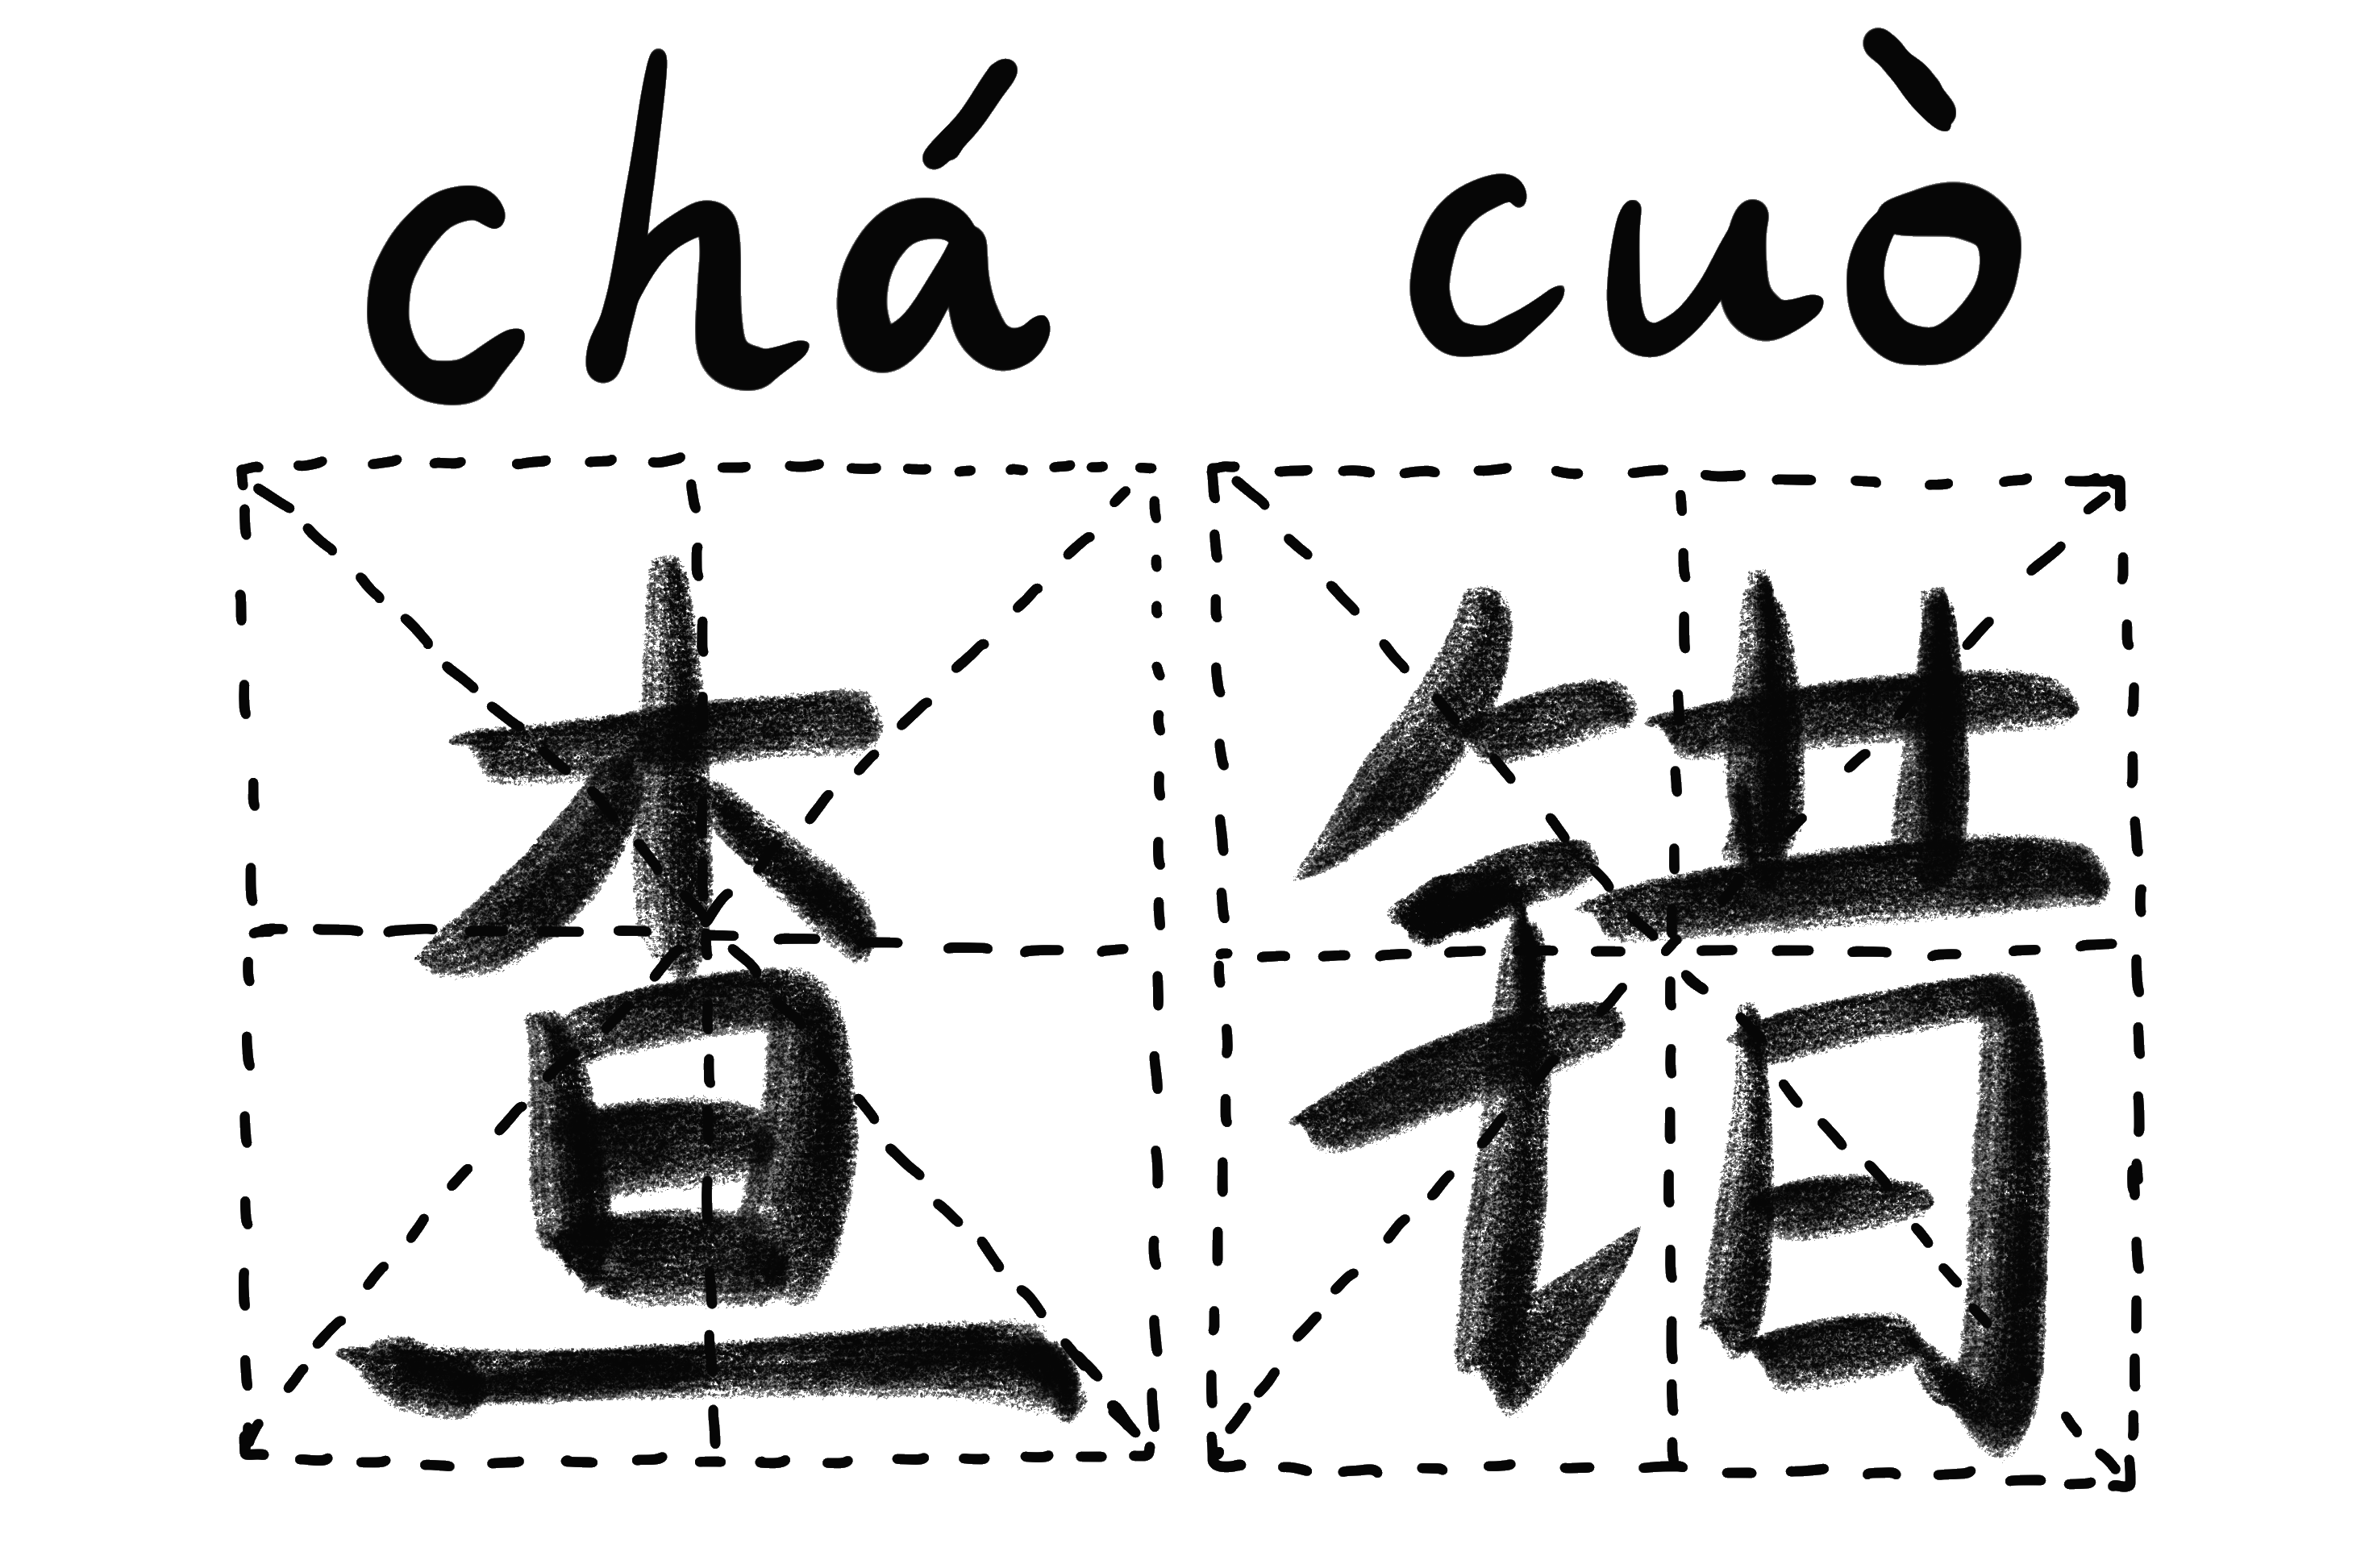 chá cuò
查错